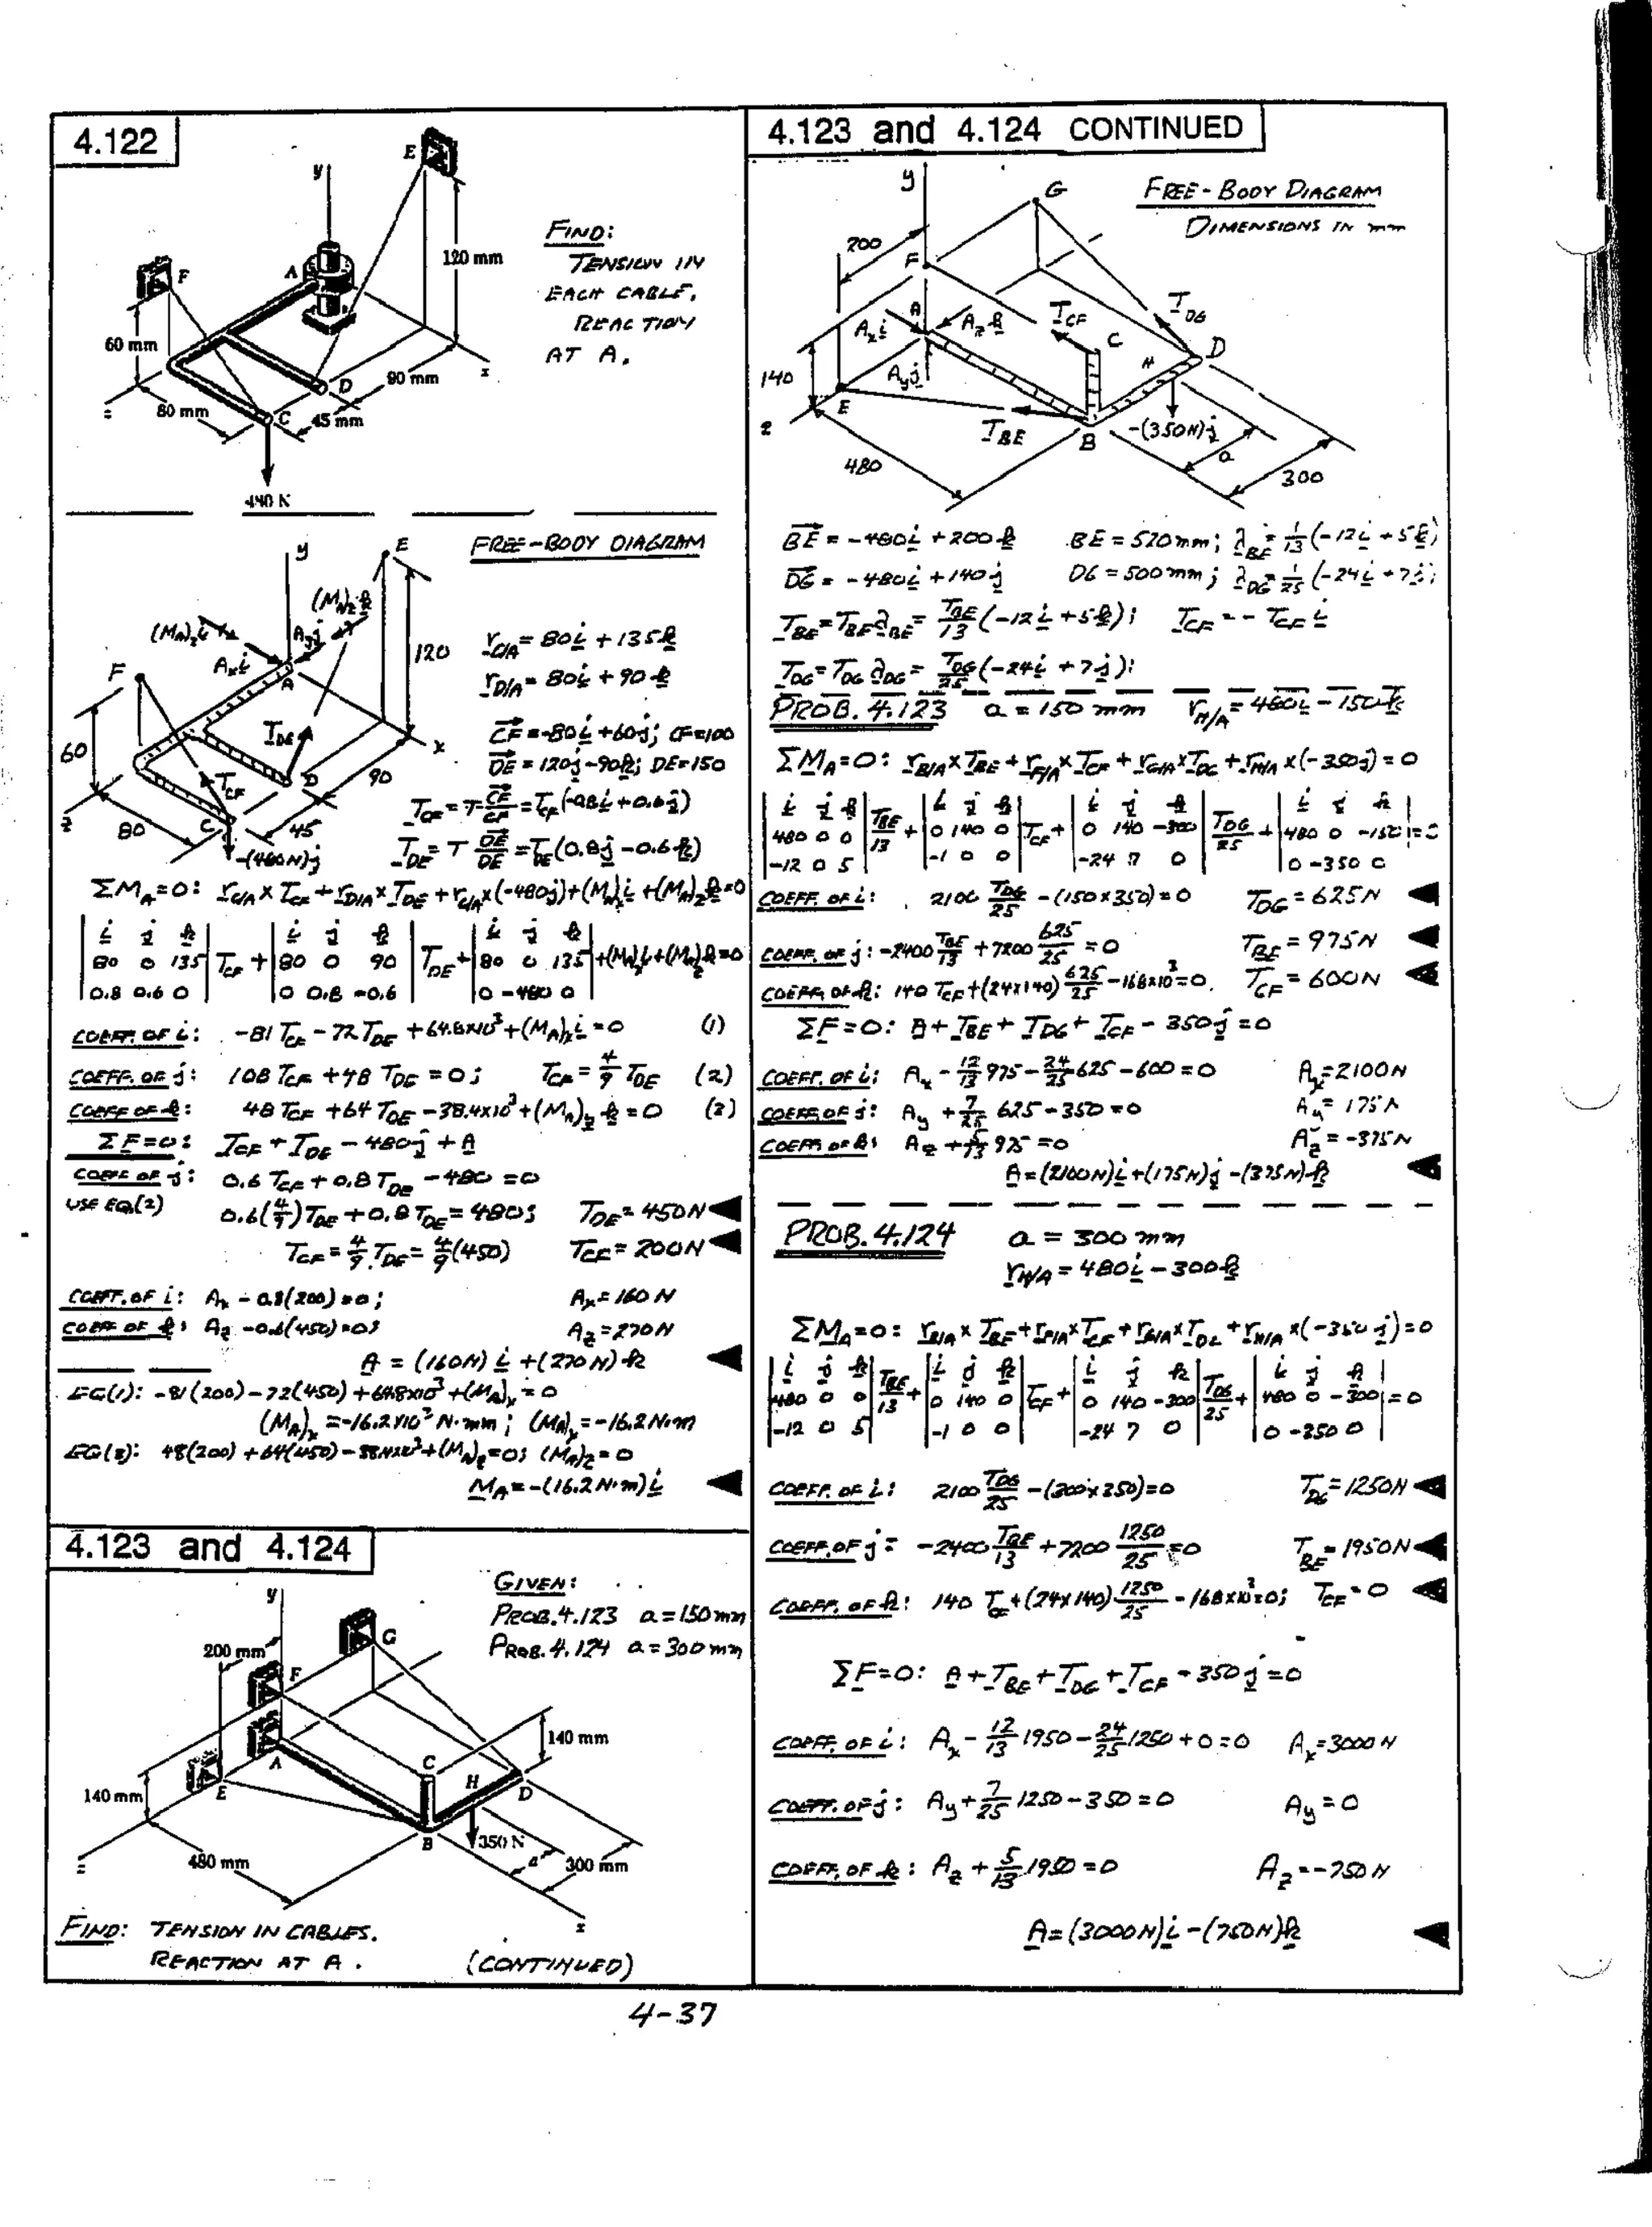 4.122
y
E
F
A
120 mm
60 mm
D
90 mm
x
80 mm
C
45 mm
z
FIND:
TENSION IN
EACH CABLE,
REACTION
AT A.
FREE-BODY DIAGRAM
y
E
(M_A)_z k
A_y j
A_x i
120
F
A
r_C/A = 80i + 135k
r_D/A = 80i + 90k
60
T_DE
x
D
90
CF = -80i + 60j; CF=100
DE = 120j - 90k; DE=150
T_CF
z
80
C
45
-(480N)j
T_CF = T CF/CF = T_CF(-0.8i + 0.6j)
T_DE = T DE/DE = T_DE(0.8j - 0.6k)
ΣM_A=0: r_C/A × T_CF + r_D/A × T_DE + r_C/A × (-480j) + (M_A)_x i + (M_A)_z k = 0
|i j k| |i j k| |i j k|
|80 0 135| T_CF + |80 0 90| T_DE + |80 0 135| + (M_A)_x i + (M_A)_z k = 0
|0.8 0.6 0| |0 0.8 -0.6| |0 -480 0|
COEFF. OF i: -81 T_CF - 72 T_DE + 64.8×10³ + (M_A)_x i = 0 (1)
COEFF. OF j: 108 T_CF + 48 T_DE = 0; T_CF = 4/9 T_DE (2)
COEFF OF k: 48 T_CF + 64 T_DE - 38.4×10³ + (M_A)_z k = 0 (3)
ΣF=0: T_CF + T_DE - 480j + A
COEFF OF j: 0.6 T_CF + 0.8 T_DE - 480 = 0
USE EQ.(2) 0.6(4/9)T_DE + 0.8 T_DE = 480; T_DE = 450N
T_CF = 4/9 T_DE = 4/9 (450) T_CF = 200N
COEFF. OF i: A_x - 0.8(200) = 0; A_x = 160 N
COEFF OF k: A_z - 0.6(450) = 0; A_z = 270 N
A = (160N) i + (270 N) k
EQ(1): -81(200) - 72(450) + 64.8×10³ + (M_A)_x = 0
(M_A)_x = -16.2×10³ N·mm; (M_A)_x = -16.2 N·m
EQ(3): 48(200) + 64(450) - 38.4×10³ + (M_A)_z = 0; (M_A)_z = 0
M_A = -(16.2 N·m) i
4.123 and 4.124
GIVEN:
PROB. 4.123 a = 150 mm
PROB. 4.124 a = 300 mm
y
G
200 mm
F
140 mm
A
C
H
D
140 mm
E
B
350 N
a
480 mm
300 mm
z
x
FIND: TENSION IN CABLES.
REACTION AT A. (CONTINUED)
4.123 and 4.124 CONTINUED
y
G
FREE-BODY DIAGRAM
DIMENSIONS IN mm
200
F
A
A_x i
A_z k
T_CF
C
T_DG
D
H
140
A_y j
E
z
T_BE
B
-(350N)j
a
480
300
BE = -480i + 200k BE = 520mm; λ_BE = 1/13 (-12i + 5k)
DG = -480i + 140j DG = 500mm; λ_DG = 1/25 (-24i + 7j);
T_BE = T_BE λ_BE = T_BE/13 (-12i + 5k); T_CF = -T_CF i
T_DG = T_DG λ_DG = T_DG/25 (-24i + 7j);
PROB. 4.123 a = 150 mm r_H/A = 480i - 150k
ΣM_A=0: r_B/A × T_BE + r_F/A × T_CF + r_G/A × T_DG + r_H/A × (-350j) = 0
|i j k| |i j k| |i j k| |i j k|
|480 0 0| T_BE/13 + |0 140 0| T_CF + |0 140 -300| T_DG/25 + |480 0 -150| = 0
|-12 0 5| |-1 0 0| |-24 7 0| |0 -350 0|
COEFF. OF i: 2100 T_DG/25 - (150×350) = 0 T_DG = 625N
COEFF. OF j: -2400 T_BE/13 + 7200 625/25 = 0 T_BE = 975N
COEFF. OF k: 140 T_CF + (24×140) 625/25 - 168×10³ = 0. T_CF = 600N
ΣF=0: A + T_BE + T_DG + T_CF - 350j = 0
COEFF. OF i: A_x - 12/13 975 - 24/25 625 - 600 = 0 A_x = 2100N
COEFF. OF j: A_y + 7/25 625 - 350 = 0 A_y = 175N
COEFF OF k: A_z + 5/13 975 = 0 A_z = -375N
A = (2100N)i + (175N)j - (375N)k
PROB. 4.124 a = 300 mm
r_H/A = 480i - 300k
ΣM_A=0: r_B/A × T_BE + r_F/A × T_CF + r_G/A × T_DG + r_H/A × (-350j) = 0
|i j k| |i j k| |i j k| |i j k|
|480 0 0| T_BE/13 + |0 140 0| T_CF + |0 140 -300| T_DG/25 + |480 0 -300| = 0
|-12 0 5| |-1 0 0| |-24 7 0| |0 -350 0|
COEFF. OF i: 2100 T_DG/25 - (300×350) = 0 T_DG = 1250N
COEFF. OF j: -2400 T_BE/13 + 7200 1250/25 = 0 T_BE = 1950N
COEFF. OF k: 140 T_CF + (24×140) 1250/25 - 168×10³ = 0; T_CF = 0
ΣF=0: A + T_BE + T_DG + T_CF - 350j = 0
COEFF. OF i: A_x - 12/13 1950 - 24/25 1250 + 0 = 0 A_x = 3000 N
COEFF. OF j: A_y + 7/25 1250 - 350 = 0 A_y = 0
COEFF. OF k: A_z + 5/13 1950 = 0 A_z = -750 N
A = (3000N)i - (750N)k
4-37